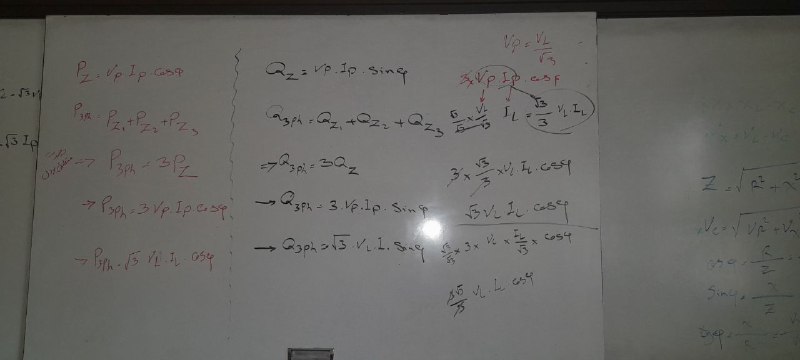 P_Z = Vp Ip . cosφ
P3ph = P_Z1 + P_Z2 + P_Z3
→ P3ph = 3P_Z
→ P3ph = 3 Vp Ip cosφ
→ P3ph = √3 VL . IL . cosφ
Q_Z = Vp . Ip . sinφ
Q3ph = Q_Z1 + Q_Z2 + Q_Z3
→ Q3ph = 3Q_Z
→ Q3ph = 3 . Vp . Ip . sinφ
→ Q3ph = √3 . VL . I . sinφ
Vp = VL/√3
3 × Vp Ip . cosφ
√3/√3 × VL/√3 IL = √3/3 VL IL
3 × √3/3 × VL IL . cosφ
√3 VL IL cosφ
√3/√3 × 3 × VL × IL/√3 × cosφ
3√3/3 VL . IL cosφ
√3 Ip
Z = √R² + X²
R/Z
sinφ = X/Z